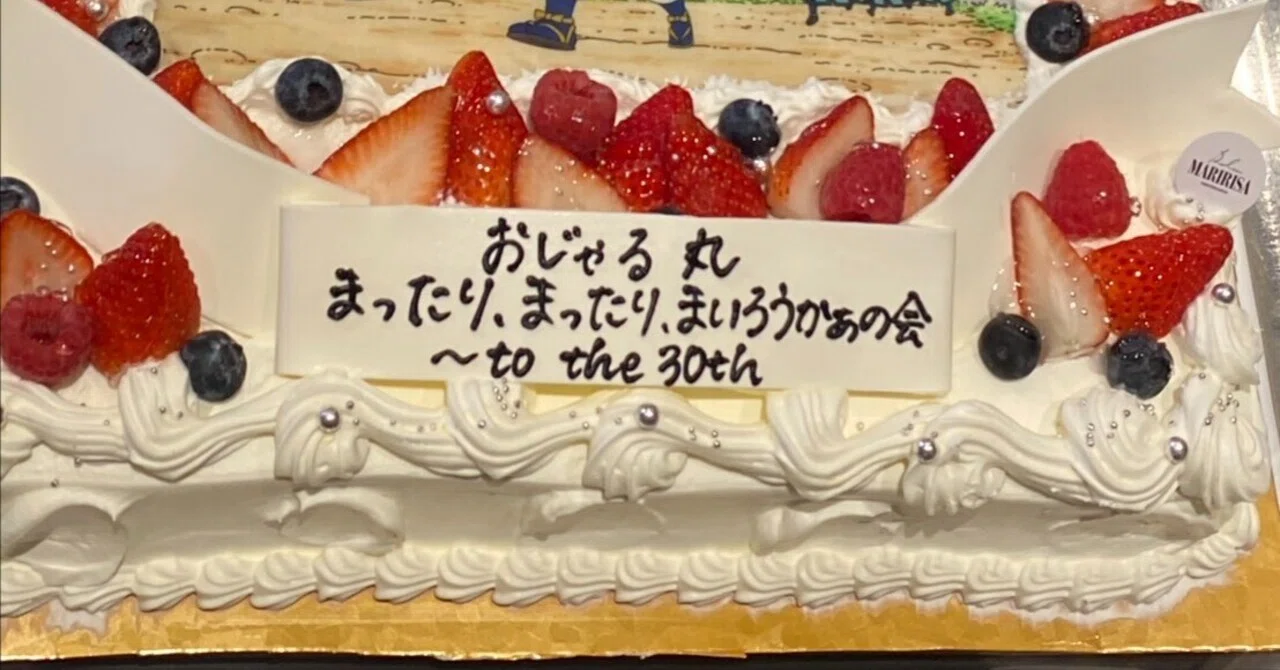 おじゃる丸
まったり、まったり、まいろうかぁの会
～to the 30th
MARIRISA